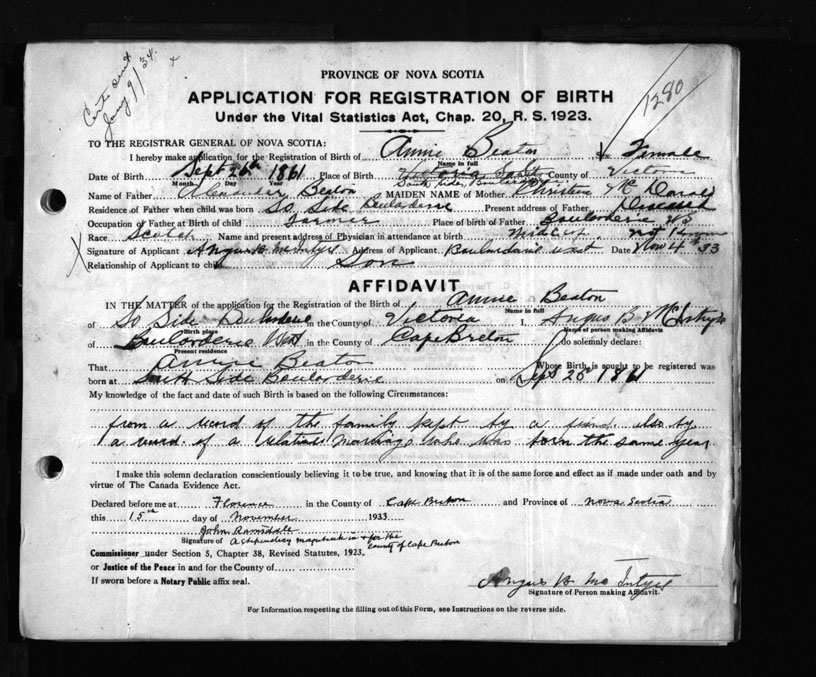 Certs sent
Jany 9/34
x
1280
PROVINCE OF NOVA SCOTIA
APPLICATION FOR REGISTRATION OF BIRTH
Under the Vital Statistics Act, Chap. 20, R. S. 1923.
TO THE REGISTRAR GENERAL OF NOVA SCOTIA:
I hereby make application for the Registration of Birth of Annie Beaton Sex Female
Name in full
Date of Birth Sept 26th 1861 Place of Birth Victoria County of Victoria
Month Day Year South Side, Boularderie
Name of Father Alexander Beaton MAIDEN NAME of Mother Christena McDonald
Residence of Father when child was born So Side Boularderie Present address of Father Deceased
Occupation of Father at Birth of child Farmer Place of birth of Father Boularderie
Race Scotch Name and present address of Physician in attendance at birth Midwife not known
Signature of Applicant Angus B. McIntyre Address of Applicant Boulardarie West Date Nov 4th 33
Relationship of Applicant to child Son
AFFIDAVIT
IN THE MATTER of the application for the Registration of the Birth of Annie Beaton
Name in full
of So Side Boularderie in the County of Victoria I, Angus B McIntyre
Birth place Name of person making Affidavit
of Boularderie West in the County of Cape Breton do solemnly declare:
Present residence
That Annie Beaton Whose Birth is sought to be registered was
born at South Side Boularderie on Sept 26th 1861
My knowledge of the fact and date of such Birth is based on the following Circumstances:
from a record of the family kept by a friend also by
a record of a relatives marriage who was born the same year
I make this solemn declaration conscientiously believing it to be true, and knowing that it is of the same force and effect as if made under oath and by
virtue of The Canada Evidence Act.
Declared before me at Florence in the County of Cape Breton and Province of Nova Scotia
this 15th day of November 1933
John Ramsdale
Signature of A stipendiary magistrate in & for the
County of Cape Breton
Commissioner under Section 5, Chapter 38, Revised Statutes, 1923.
or Justice of the Peace in and for the County of
If sworn before a Notary Public affix seal.
Angus B. McIntyre
Signature of Person making Affidavit.
For Information respecting the filling out of this Form, see Instructions on the reverse side.